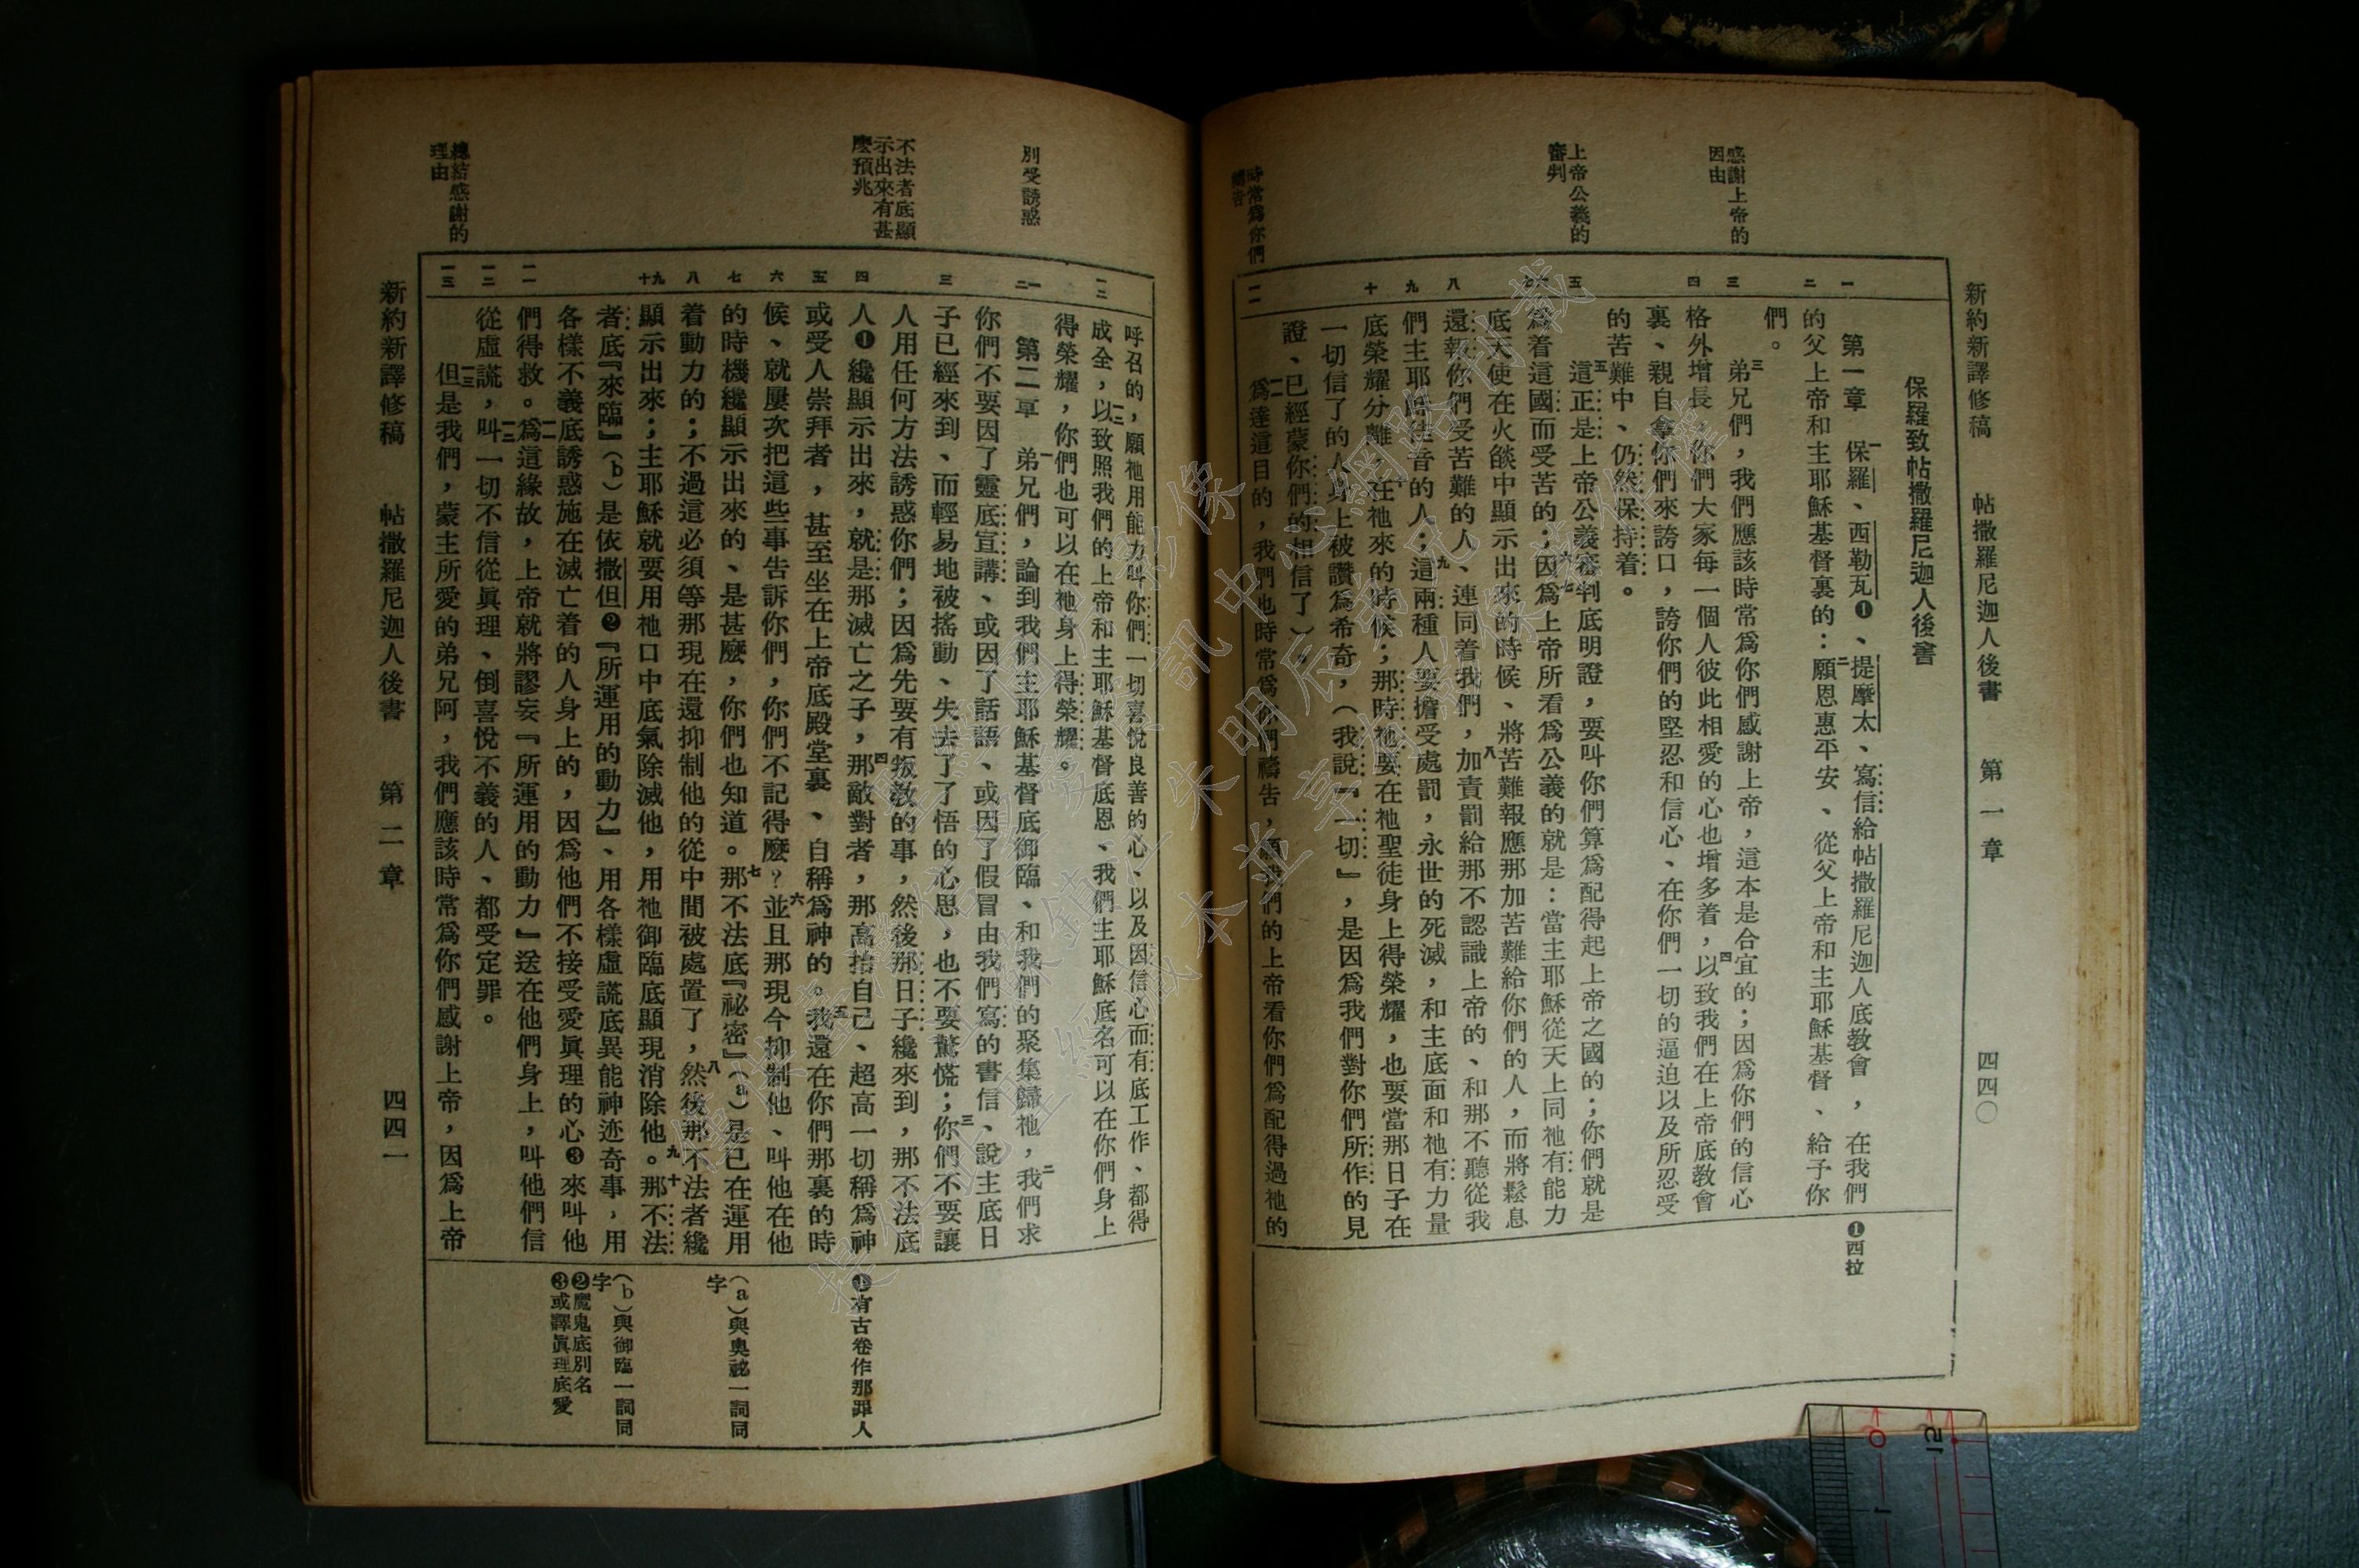 新約新譯修稿　帖撒羅尼迦人後書　第一章　四四〇
感謝上帝的
因由
上帝公義的
審判
時常為你們
禱告
一
二
三
四
五
八
九
十
一一
保羅致帖撒羅尼迦人後書
第一章　一保羅、西勒瓦❶、提摩太、寫信給帖撒羅尼迦人底教會，在我們
的父上帝和主耶穌基督裏的：二願恩惠平安、從父上帝和主耶穌基督、給予你
們。
三弟兄們，我們應該時常爲你們感謝上帝，這本是合宜的；因爲你們的信心
格外增長，你們大家每一個人彼此相愛的心也增多着，四以致我們在上帝底教會
裏、親自拿你們來誇口，誇你們的堅忍和信心、在你們一切的逼迫以及所忍受
的苦難中、仍然保持着。
五這正是上帝公義審判底明證，要叫你們算爲配得起上帝之國的；你們就是
爲着這國而受苦的；因爲上帝所看爲公義的就是：當主耶穌從天上同祂有能力
底天使在火燄中顯示出來的時候、將苦難報應那加苦難給你們的人，而將鬆息
還報你們受苦難的人、連同着我們，八加責罰給那不認識上帝的、和那不聽從我
們主耶穌佳音的人；九這兩種人要擔受處罰，永世的死滅，和主底面和祂有力量
底榮耀分離，在祂來的時候；那時祂要在祂聖徒身上得榮耀，也要當那日子在
一切信了的人身上被讚爲希奇，（我說『一切』，是因爲我們對你們所作的見
證、已經蒙你們的相信了）。
爲達這目的，我們也時常爲你們禱告，願我們的上帝看你們爲配得過祂的
❶西拉
別受誘惑
不法者底顯
示出來有甚
麼預兆
總結感謝的
理由
一二
一二
三
四
五
六
七
八
九十
一一
一二
一三
呼召的，願祂用能力叫你們一切喜悅良善的心、以及因信心而有底工作、都得
成全，以致照我們的上帝和主耶穌基督底恩、我們主耶穌底名可以在你們身上
得榮耀，你們也可以在祂身上得榮耀。
第二章　一弟兄們，論到我們主耶穌基督底御臨、和我們的聚集歸祂，二我們求
你們不要因了靈底宣講、或因了話語、或因了假冒由我們寫的書信、說主底日
子已經來到、而輕易地被搖動、失去了了悟的心思，也不要驚慌；三你們不要讓
人用任何方法誘惑你們；因爲先要有叛教的事，然後那日子纔來到，那不法底
人❶纔顯示出來，就是那滅亡之子，四那敵對者，那高抬自己、超高一切稱爲神
或受人崇拜者，甚至坐在上帝底殿堂裏、自稱爲神的。五我還在你們那裏的時
候、就屢次把這些事告訴你們，你們不記得麼？六並且那現今抑制他、叫他在他
的時機纔顯示出來的、是甚麼，你們也知道。七那不法底『祕密』（a）是已在運用
着動力的；不過這必須等那現在還抑制他的從中間被處置了，八然後那不法者纔
顯示出來；主耶穌就要用祂口中底氣除滅他，用祂御臨底顯現消除他。九十那不法
者底『來臨』（b）是依撒但❷『所運用的動力』、用各樣虛謊底異能神迹奇事，用
各樣不義底誘惑施在滅亡着的人身上的，因爲他們不接受愛眞理的心❸來叫他
們得救。一一爲這緣故，上帝就將謬妄『所運用的動力』送在他們身上，叫他們信
從虛謊，一二叫一切不信從眞理、倒喜悅不義的人、都受定罪。
一三但是我們，蒙主所愛的弟兄阿，我們應該時常爲你們感謝上帝，因爲上帝
❶有古卷作那罪人
（a）與奧祕一詞同
字
（b）與御臨一詞同
字
❷魔鬼底別名
❸或譯眞理底愛
新約新譯修稿　帖撒羅尼迦人後書　第二章　四四一